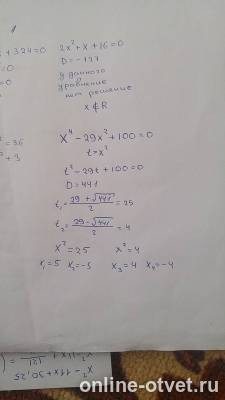 x + 324 = 0
2x² + x + 16 = 0
= 0
D = -127
0
у данного
уравнение
нет решение
x ∉ R
= 36
² + 3
x⁴ - 29x² + 100 = 0
t = x²
t² - 29t + 100 = 0
D = 441
t₁ = (29 + √441)/2 = 25
t₂ = (29 - √441)/2 = 4
x² = 25 x² = 4
x₁ = 5 x₂ = -5 x₃ = 4 x₄ = -4
x² - 11x + 30,25
online-otvet.ru